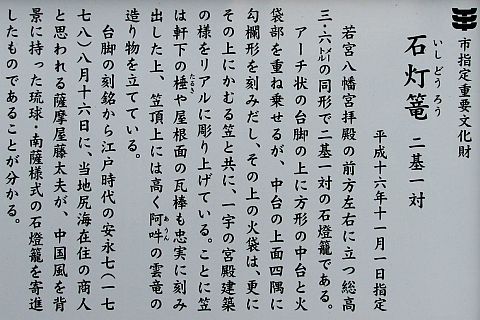 市指定重要文化財
いしどうろう
石灯篭 二基一対
平成十六年十一月一日指定
若宮八幡宮拝殿の前方左右に立つ総高
三・六メートルの同形で二基一対の石燈籠である。
アーチ状の台脚の上に方形の中台と火
袋部を重ね乗せるが、中台の上面四隅に
勾欄形を刻みだし、その上の火袋は、更に
その上にかむる笠と共に、一宇の宮殿建築
の様をリアルに彫り上げている。ことに笠
は軒下の棰や屋根面の瓦棒も忠実に刻み
たるき
出した上、笠頂上には高く阿吽の雲竜の
あうん
造り物を立てている。
台脚の刻銘から江戸時代の安永七(一七
七八)八月十六日に、当地尻海在住の商人
と思われる薩摩屋藤太夫が、中国風を背
景に持った琉球・南薩様式の石燈籠を寄進
したものであることが分かる。